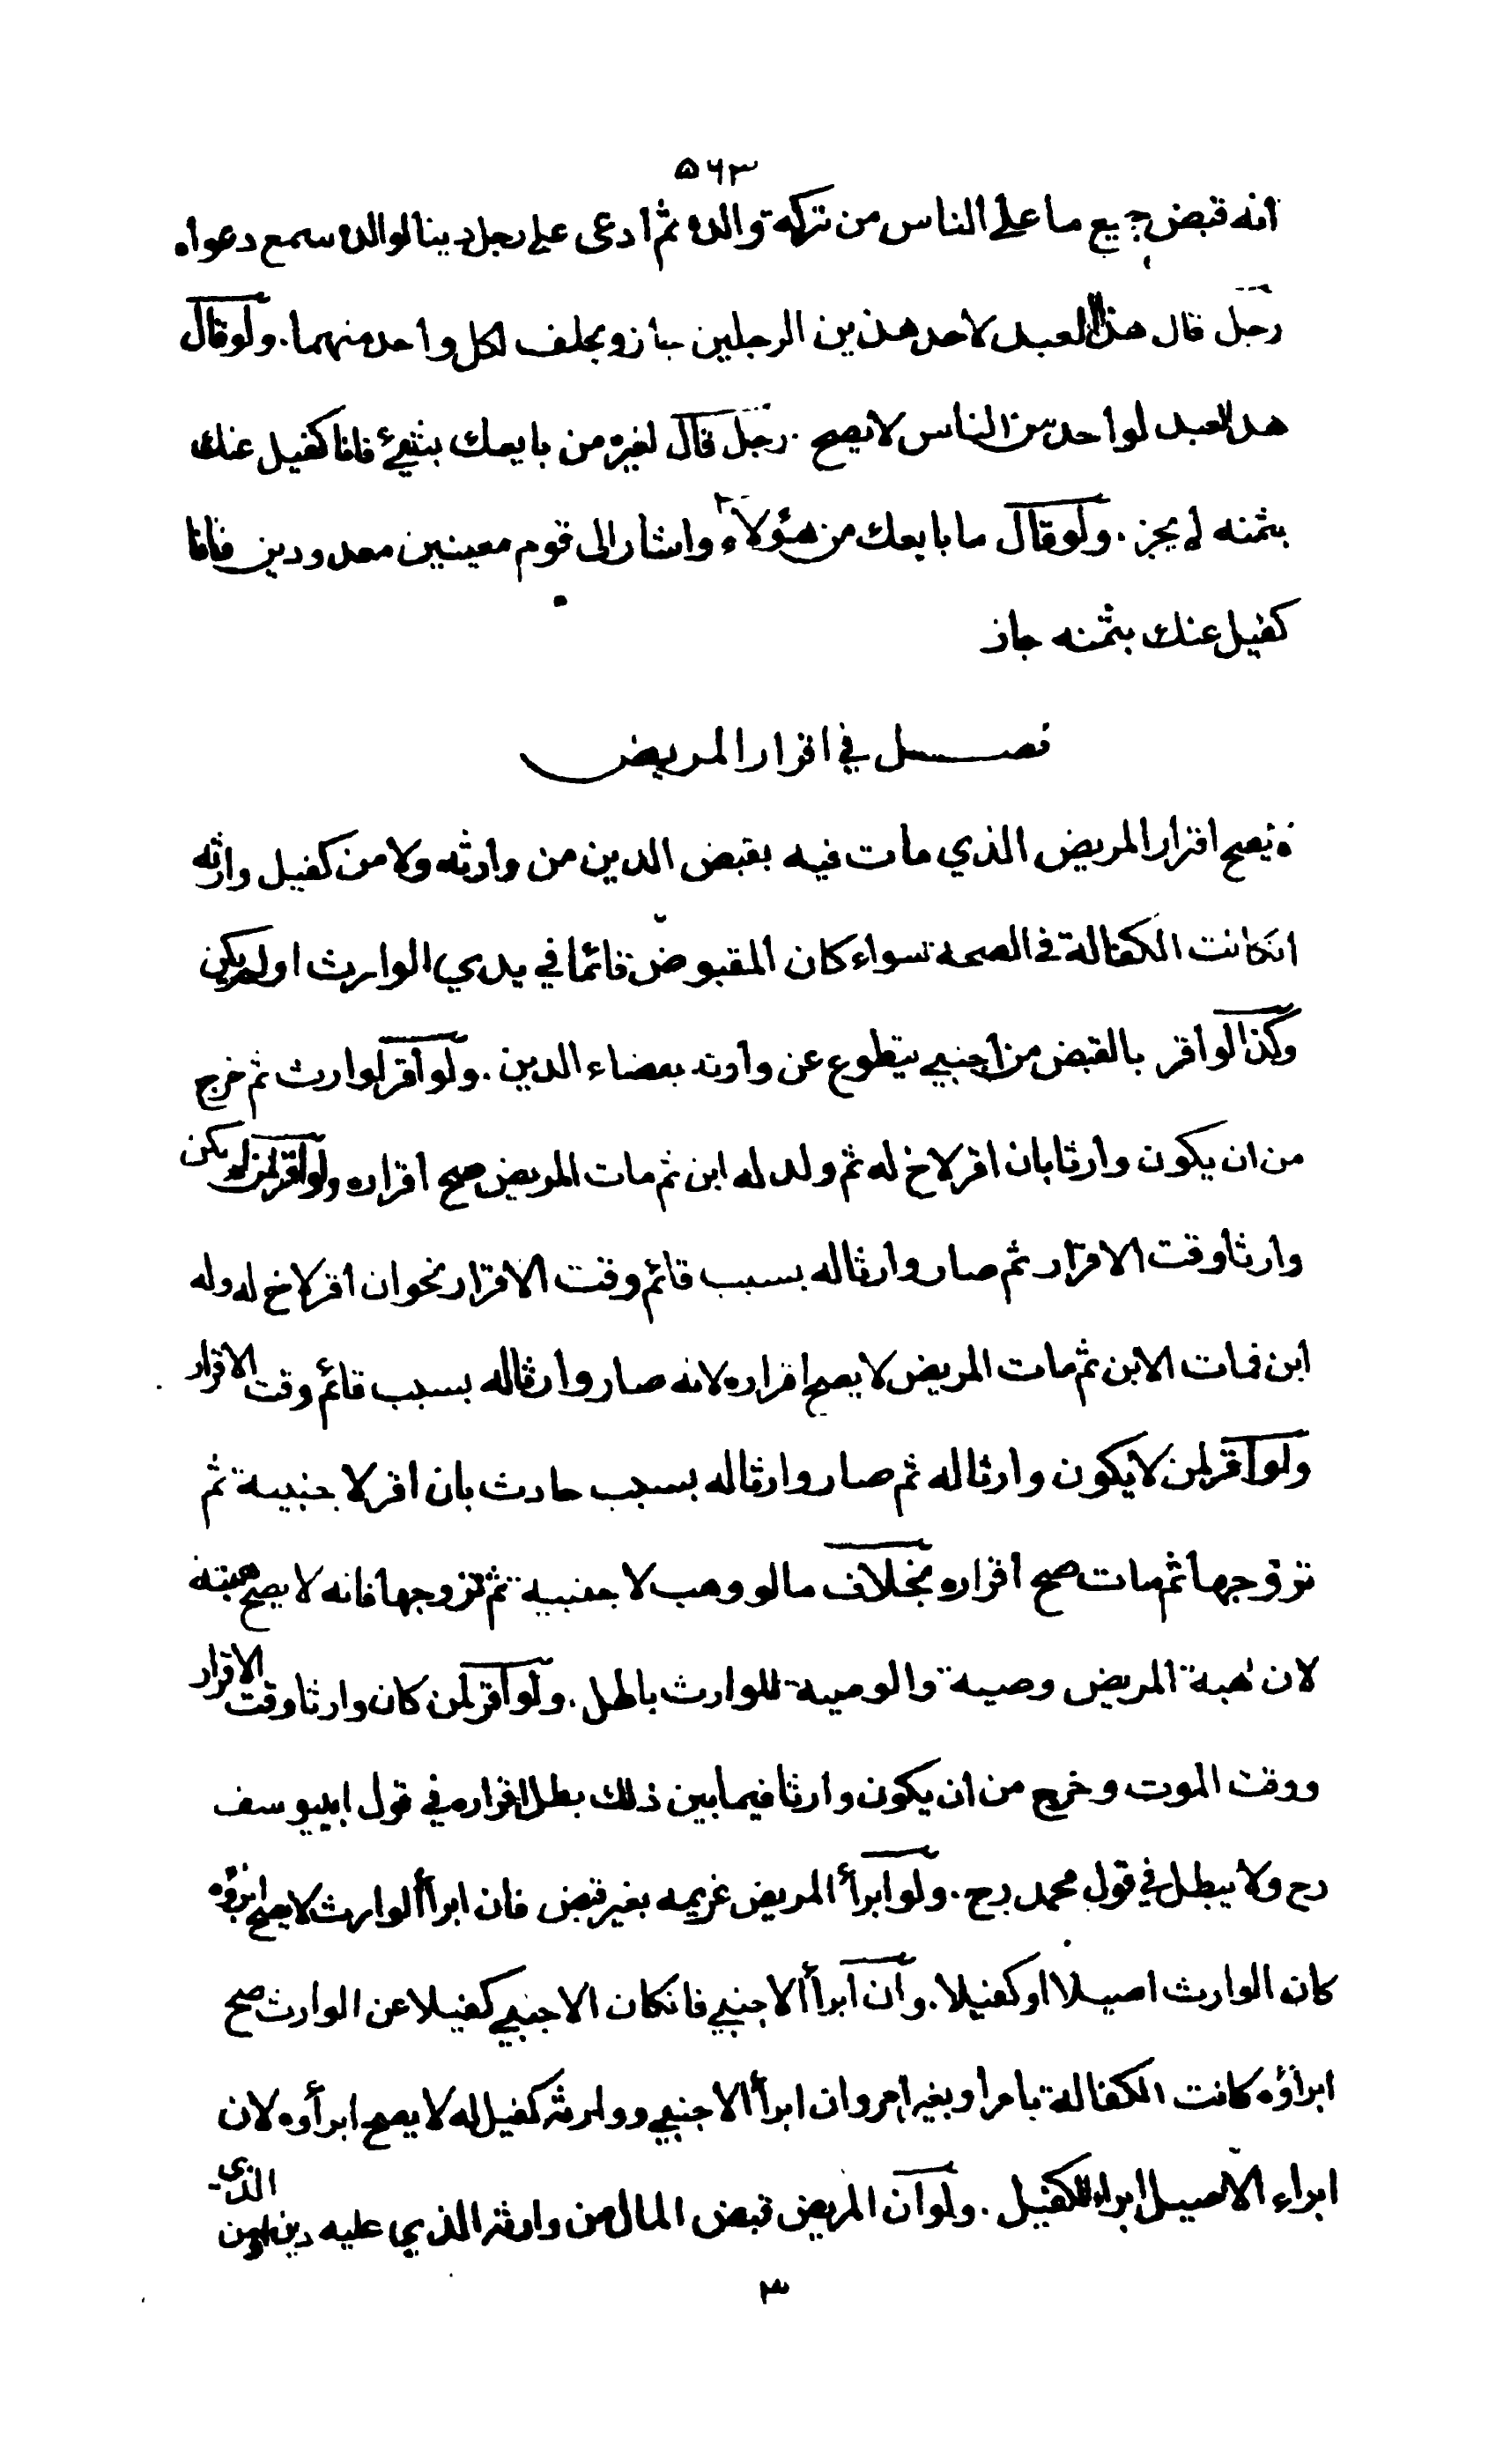 ۵۶۳
انه قبض جميع ما على الناس من تركة والده ثم ادعى على رجل دينا لوالده سمع دعواه
رجل قال هذا العبد لاحد هذين الرجلين جاز ويحلف لكل واحد منهما . ولو قال
هذا العبد لواحد من الناس لا يصح . رجل قال لغيره من بايعك بشيئ فانا كفيل عنك
بثمنه لم يجز . ولو قال ما بايعك من هؤلاء واشار الى قوم معينين معدودين فانا
كفيل عنك بثمنه جاز
فصل في اقرار المريض
لا يصح اقرار المريض الذي مات فيه بقبض الدين من وارثه ولا من كفيل وارثه
انكانت الكفالة في الصحة سواء كان المقبوض قائما في يدي الوارث او لم يكن
وكذا لو اقر بالقبض من اجنبي يتطوع عن وارثه بقضاء الدين . ولو اقر لوارث ثم خرج
من ان يكون وارثا بان اقر لاخ له ثم ولد له ابن ثم مات المريض صح اقراره ولو اقر لمن لم يكن
وارثا وقت الاقرار ثم صار وارثا له بسبب قائم وقت الاقرار نحو ان اقر لاخ له وله
ابن فمات الابن ثم مات المريض لا يصح اقراره لانه صار وارثا له بسبب قائم وقت الاقرار
ولو اقر لمن لا يكون وارثا له ثم صار وارثا له بسبب حادث بان اقر لاجنبية ثم
تزوجها ثم مات صح اقراره بخلاف ما لو وهب لاجنبية ثم تزوجها فانه لا يصح هبته
لان هبة المريض وصية والوصية للوارث باطل . ولو اقر لمن كان وارثا وقت الاقرار
ووقت الموت وخرج من ان يكون وارثا فيما بين ذلك بطل اقراره في قول ابييوسف
رح ولا يبطل في قول محمد رح . ولو ابرأ المريض غريمه بغير قبض فان ابرأ الوارث لا يصح ابرؤه
كان الوارث اصيلا او كفيلا . وان ابرأ الاجنبي فانكان الاجنبي كفيلا عن الوارث صح
ابراؤه كانت الكفالة بامر او بغير امر وان ابرأ الاجنبي ووارثه كفيل له لا يصح ابرأوه لان
ابراء الاصيل ابراء للكفيل . ولو ان المريض قبض المال من وارثه الذي عليه دين او من الذي
۳